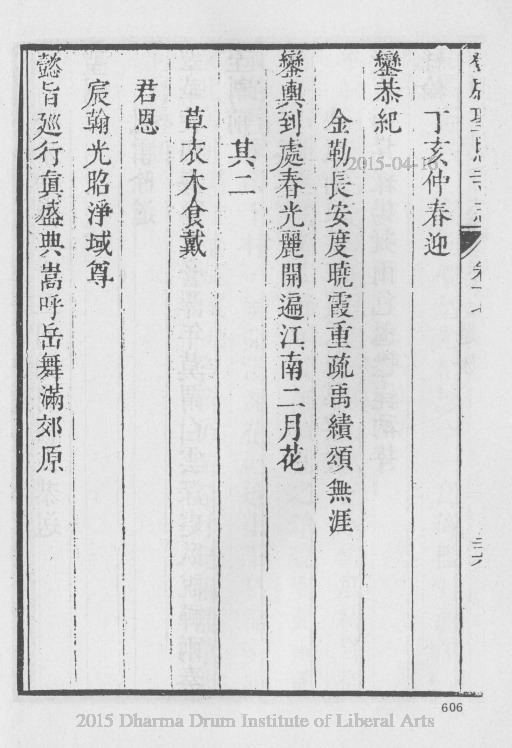 丁亥仲春迎
鑾恭紀
金勒長安度曉霞重疏禹績頌無涯
鑾輿到處春光麗開遍江南二月花
其二
草衣木食戴
君恩
宸翰光昭淨域尊
懿旨廵行眞盛典嵩呼岳舞滿郊原
2015-04-16
606
2015 Dharma Drum Institute of Liberal Arts